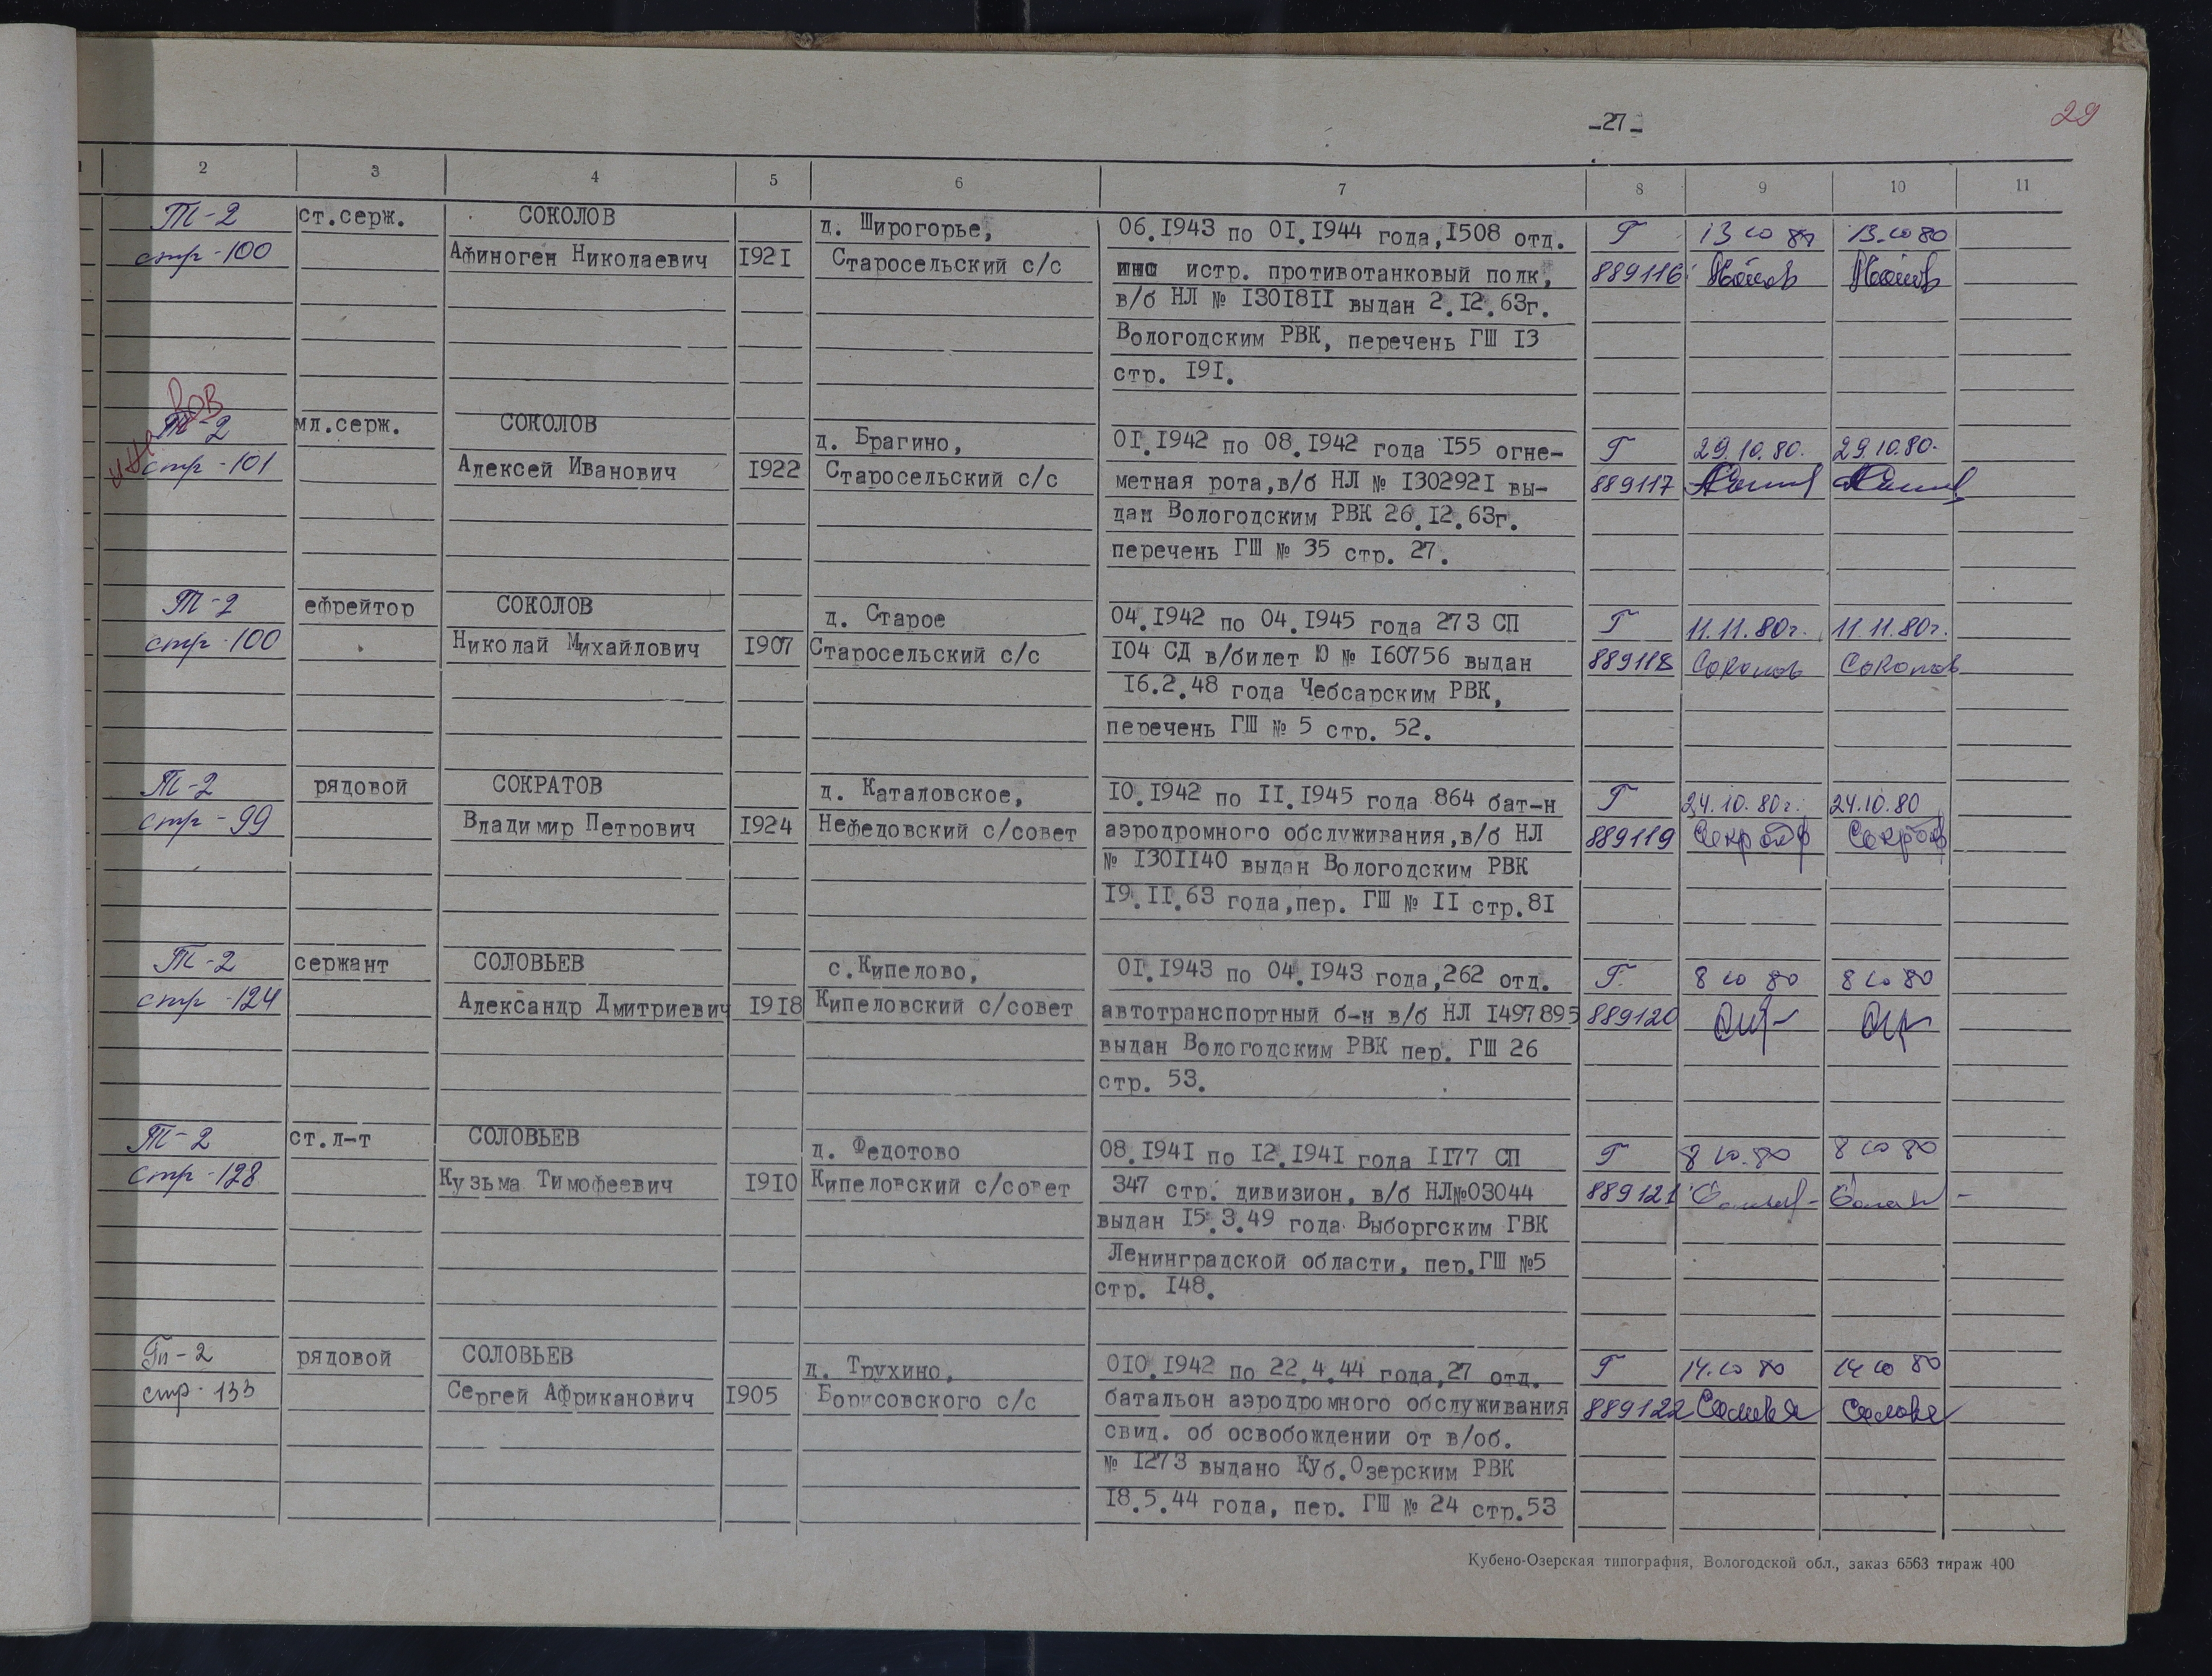 -27-
29
2 3 4 5 6 7 8 9 10 11
Т-2 ст.серж. СОКОЛОВ д. Широгорье, 06.I943 по 0I.I944 года,I508 отд. Г 13 10 80 13.10 80
стр-100 Афиноген Николаевич I92I Старосельский с/с истр. противотанковый полк, 889116
в/б НЛ № I30I8II выдан 2.I2.63г.
Вологодским РВК, перечень ГШ I3
стр. I9I.
ВОВ
Т-2 мл.серж. СОКОЛОВ д. Брагино, 0I.I942 по 08.I942 года I55 огне- Г 29.10.80. 29.10.80.
инв стр-101 Алексей Иванович I922 Старосельский с/с метная рота,в/б НЛ № I30292I вы- 889117
дан Вологодским РВК 26.I2.63г.
перечень ГШ № 35 стр. 27.
Т-2 ефрейтор СОКОЛОВ д. Старое 04.I942 по 04.I945 года 273 СП Г 11.11.80г. 11.11.80г.
стр-100 Николай Михайлович I907 Старосельский с/с I04 СД в/билет Ю № I60756 выдан 889118 Соколов Соколов
I6.2.48 года Чебсарским РВК,
перечень ГШ № 5 стр. 52.
Т-2 рядовой СОКРАТОВ д. Каталовское, I0.I942 по II.I945 года 864 бат-н Г 24.10.80г. 24.10.80
стр-99 Владимир Петрович I924 Нефедовский с/совет аэродромного обслуживания,в/б НЛ 889119
№ I30II40 выдан Вологодским РВК
I9.II.63 года,пер. ГШ № II стр.8I
Т-2 сержант СОЛОВЬЕВ с.Кипелово, 0I.I943 по 04.I943 года,262 отд. Г. 8 10 80 8 10 80
стр-124 Александр Дмитриевич I9I8 Кипеловский с/совет автотранспортный б-н в/б НЛ I497895 889120
выдан Вологодским РВК пер. ГШ 26
стр. 53.
Т-2 ст.л-т СОЛОВЬЕВ д. Федотово 08.I94I по I2.I94I года II77 СП Г 8 10.80 8 10 80
стр-128 Кузьма Тимофеевич I9I0 Кипеловский с/совет 347 стр. дивизион, в/б НЛ№03044 889121
выдан I5.3.49 года Выборгским ГВК
Ленинградской области, пер.ГШ №5
стр. I48.
Гл-2 рядовой СОЛОВЬЕВ д. Трухино, 0I0.I942 по 22.4.44 года,27 отд. Г 14.10 80 14 10 80
стр. 133 Сергей Африканович I905 Борисовского с/с батальон аэродромного обслуживания 889122
свид. об освобождении от в/об.
№ I273 выдано Куб.Озерским РВК
I8.5.44 года, пер. ГШ № 24 стр.53
Кубено-Озерская типография, Вологодской обл., заказ 6563 тираж 400